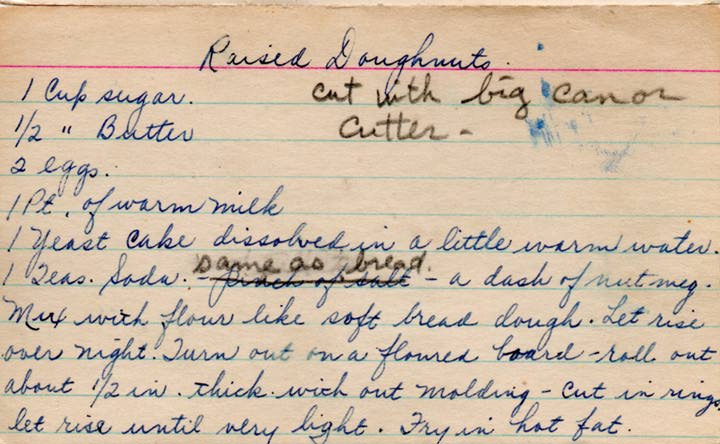 Raised Doughnuts.
1 Cup sugar. cut with big can or
1/2 " Butter Cutter -
2 eggs.
1 Pt. of warm milk
1 Yeast Cake dissolved in a little warm water.
same as bread.
1 Teas. Soda. - Pinch of salt - a dash of nutmeg.
Mix with flour like soft bread dough. Let rise
over night. Turn out on a floured board - roll out
about 1/2 in. thick with out molding - Cut in rings,
let rise until very light. Fry in hot fat.